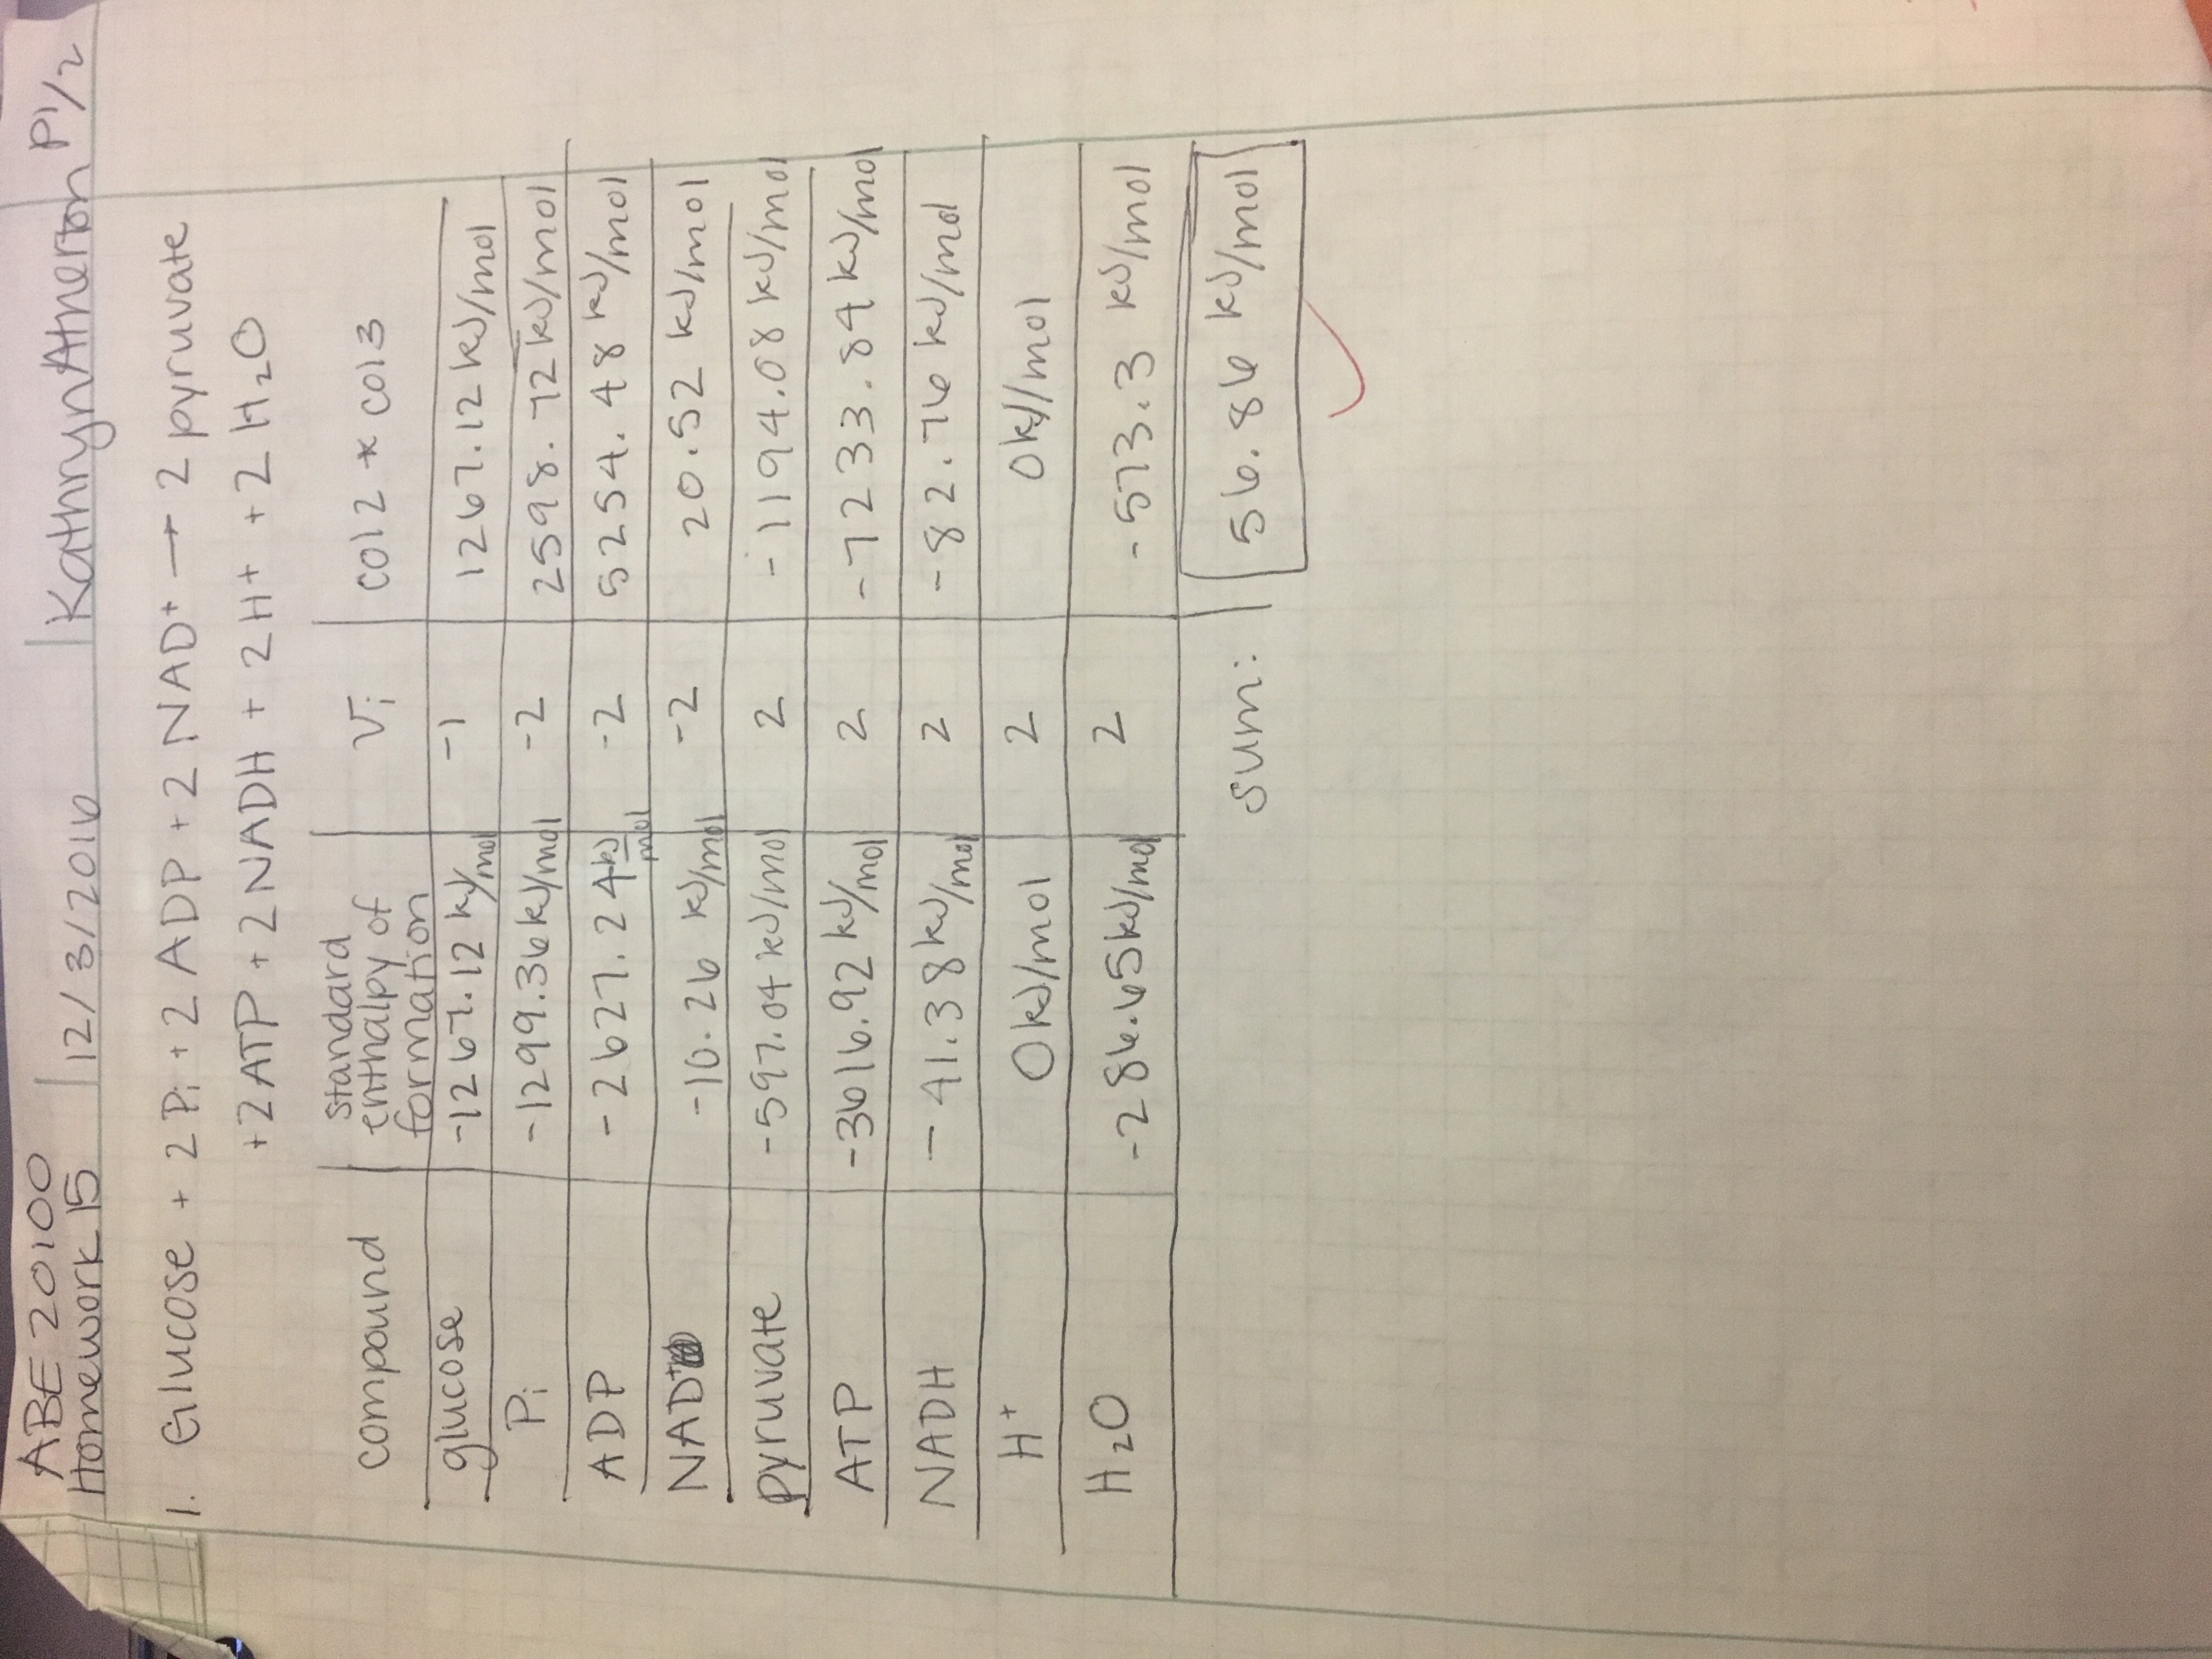 ABE 20100
Homework 15 | 12/3/2016 | Kathryn Atherton P1/2
1. Glucose + 2 Pi + 2 ADP + 2 NAD+ → 2 pyruvate
+2ATP + 2 NADH + 2H+ + 2 H₂O
compound | standard enthalpy of formation | Vi | col 2 * col 3
glucose | -1267.12 kJ/mol | -1 | 1267.12 kJ/mol
Pi | -1299.36 kJ/mol | -2 | 2598.72 kJ/mol
ADP | -2627.24 kJ/mol | -2 | 5254.48 kJ/mol
NAD+ | -10.26 kJ/mol | -2 | 20.52 kJ/mol
pyruvate | -597.04 kJ/mol | 2 | -1194.08 kJ/mol
ATP | -3616.92 kJ/mol | 2 | -7233.84 kJ/mol
NADH | -41.38 kJ/mol | 2 | -82.76 kJ/mol
H+ | 0 kJ/mol | 2 | 0 kJ/mol
H₂O | -286.65 kJ/mol | 2 | -573.3 kJ/mol
sum: | 56.86 kJ/mol